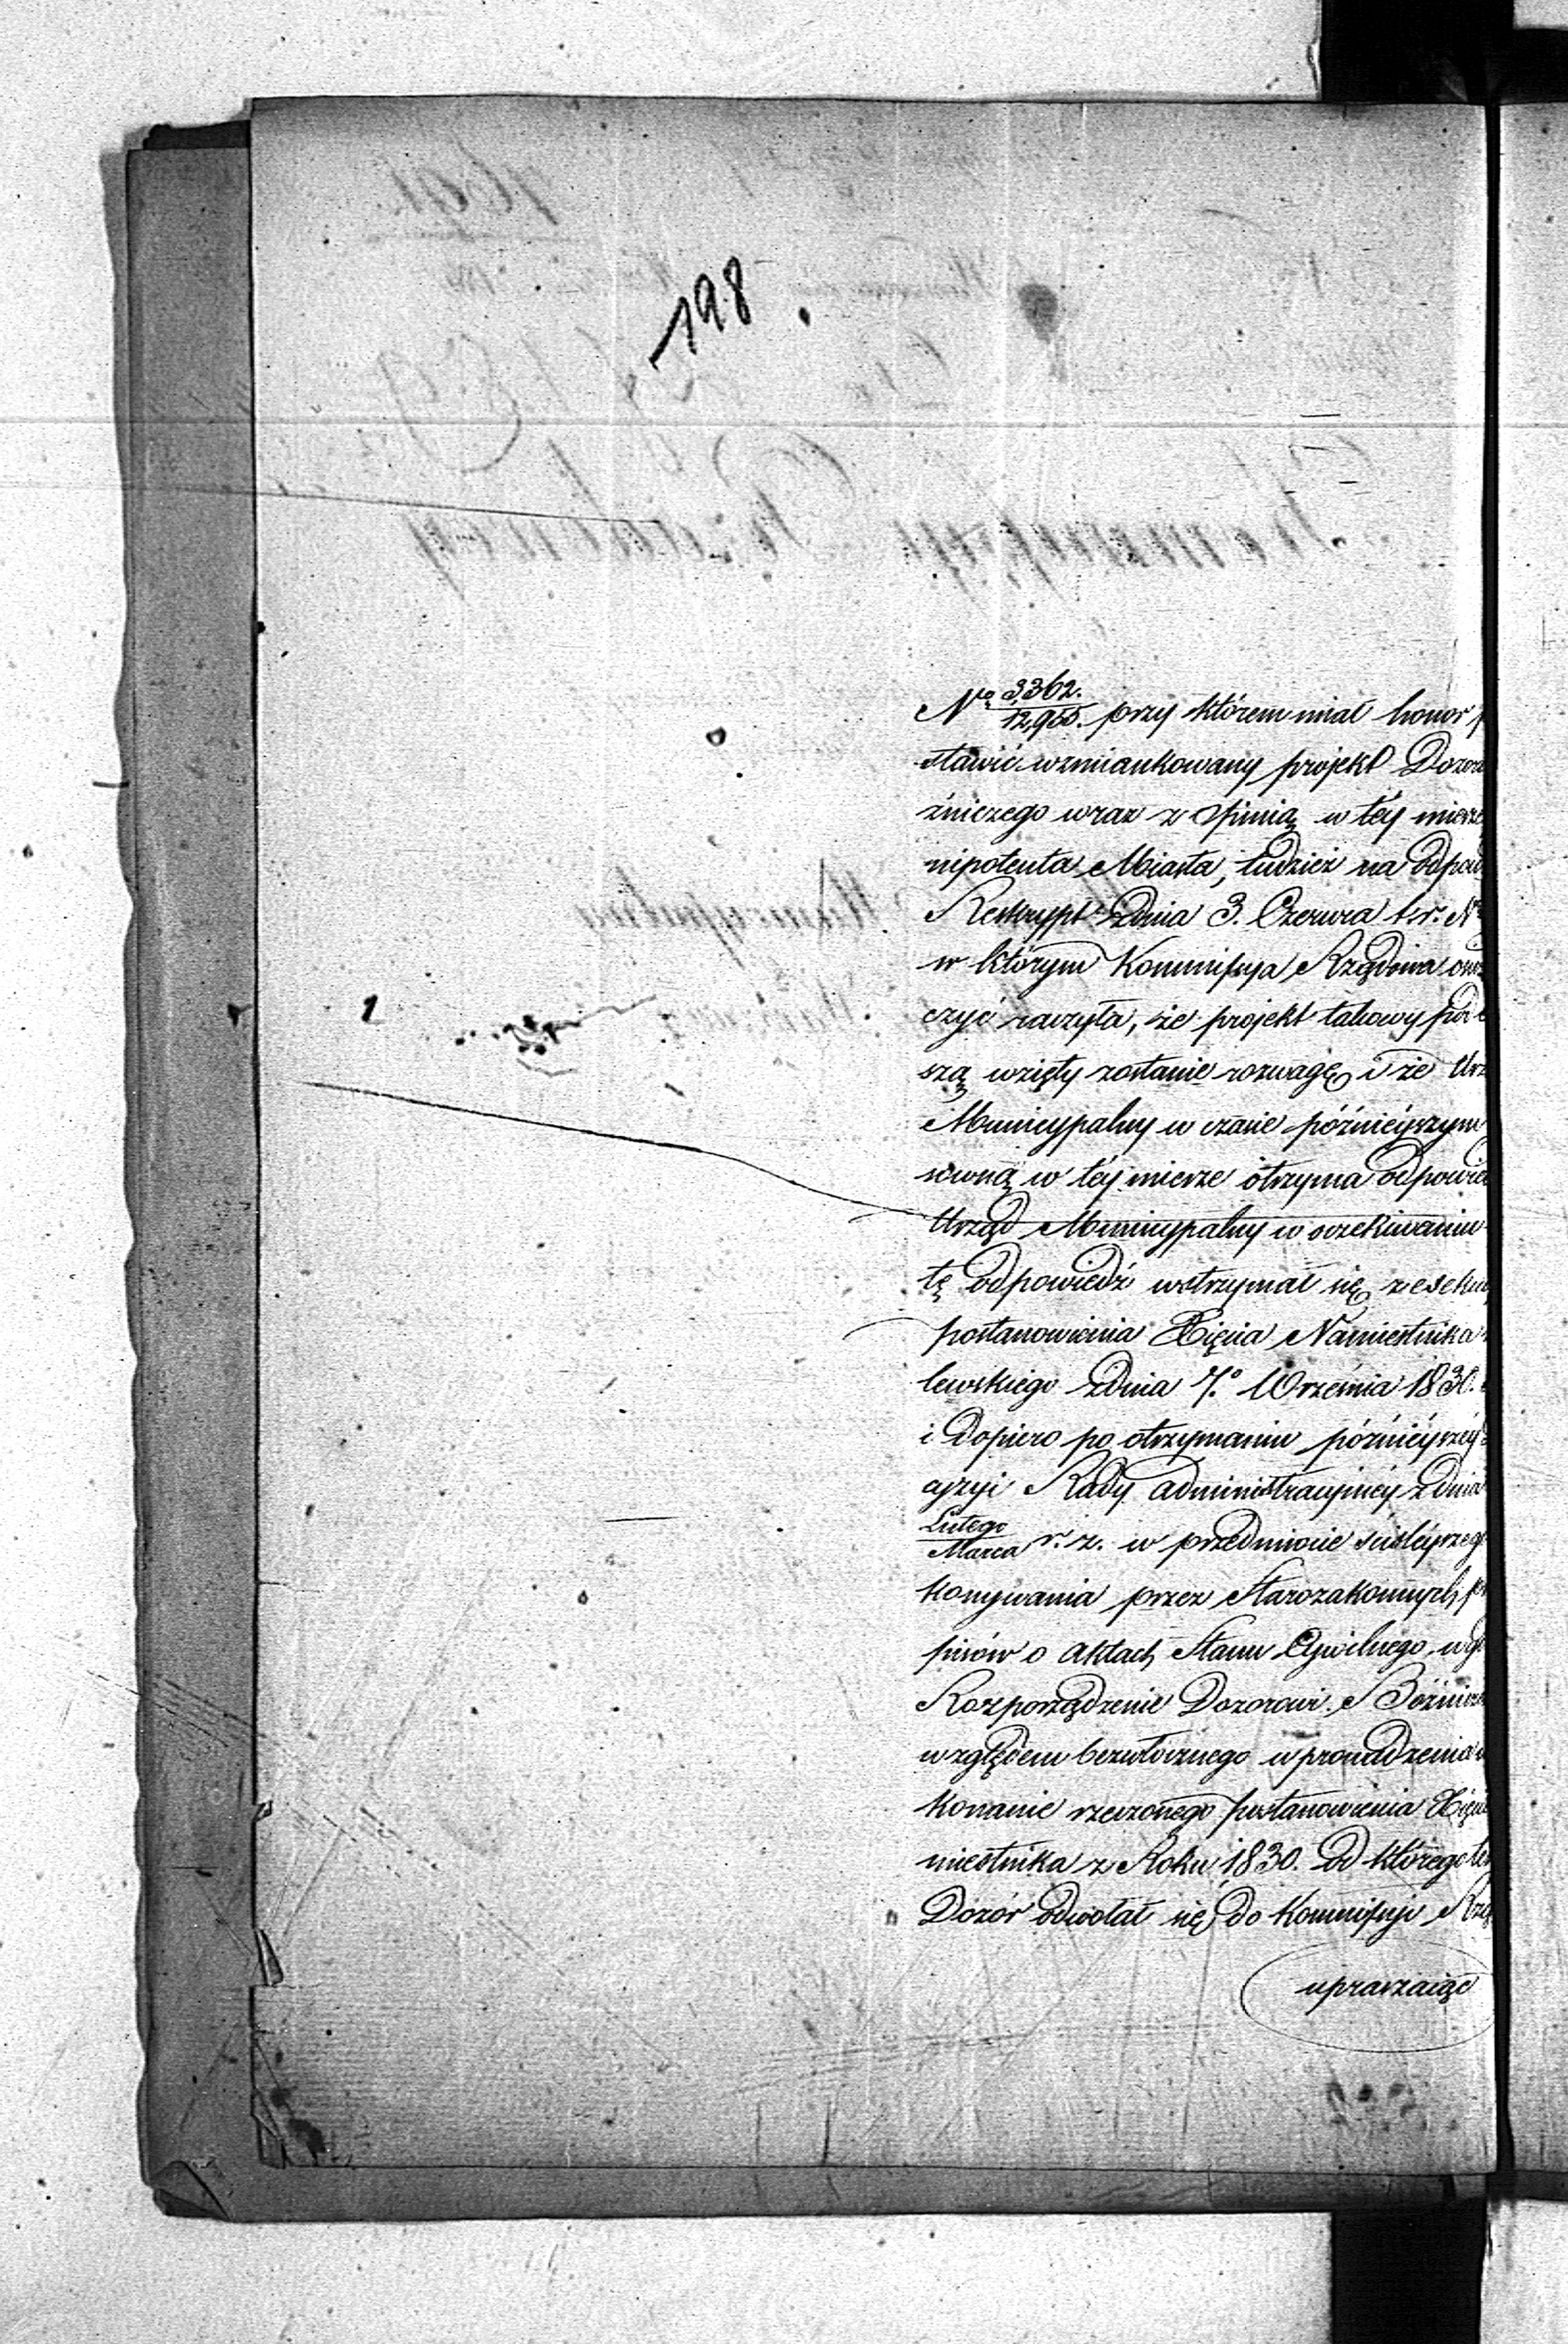 198
No 3362./12,955. przy którem miał honor
stawić wzmiankowany projekt Dozoru
źniczego wraz z Opinią w téy mierze
nipotenta Miasta, tudzież na odpow
Reskrypt z dnia 3. Czerwca t. r. No
w którym Kommissya Rządowa
czyć raczyła, że projekt takowy pod
szą wzięty zostanie rozwagę i że Urz
Municypalny w czasie późniéyszym
sowną w téy mierze otrzyma odpowie
Urząd Municypalny w oczekiwaniu
tę odpowiedź wstrzymał się z exeku
postanowienia Xięcia Namiestnika
lewskiego z dnia 7.o Września 1830.
i dopiero po otrzymaniu późniéyszéy
cyzyi Rady Administracyinéy z dnia
Lutego/Marca r. z. w przedmiocie ściśléyszego
konywania przez Starozakonnych
pisów o Aktach Stanu Cywilnego, wy
Rozporządzenie Dozorowi Bóżnicz
względem bezzwłocznego wprowadzenia w
konanie rzeczonego postanowienia Xięcia
miestnika z Roku 1830. od którego
Dozór odwołał się do Kommissyi Rzą
upraszaiąc